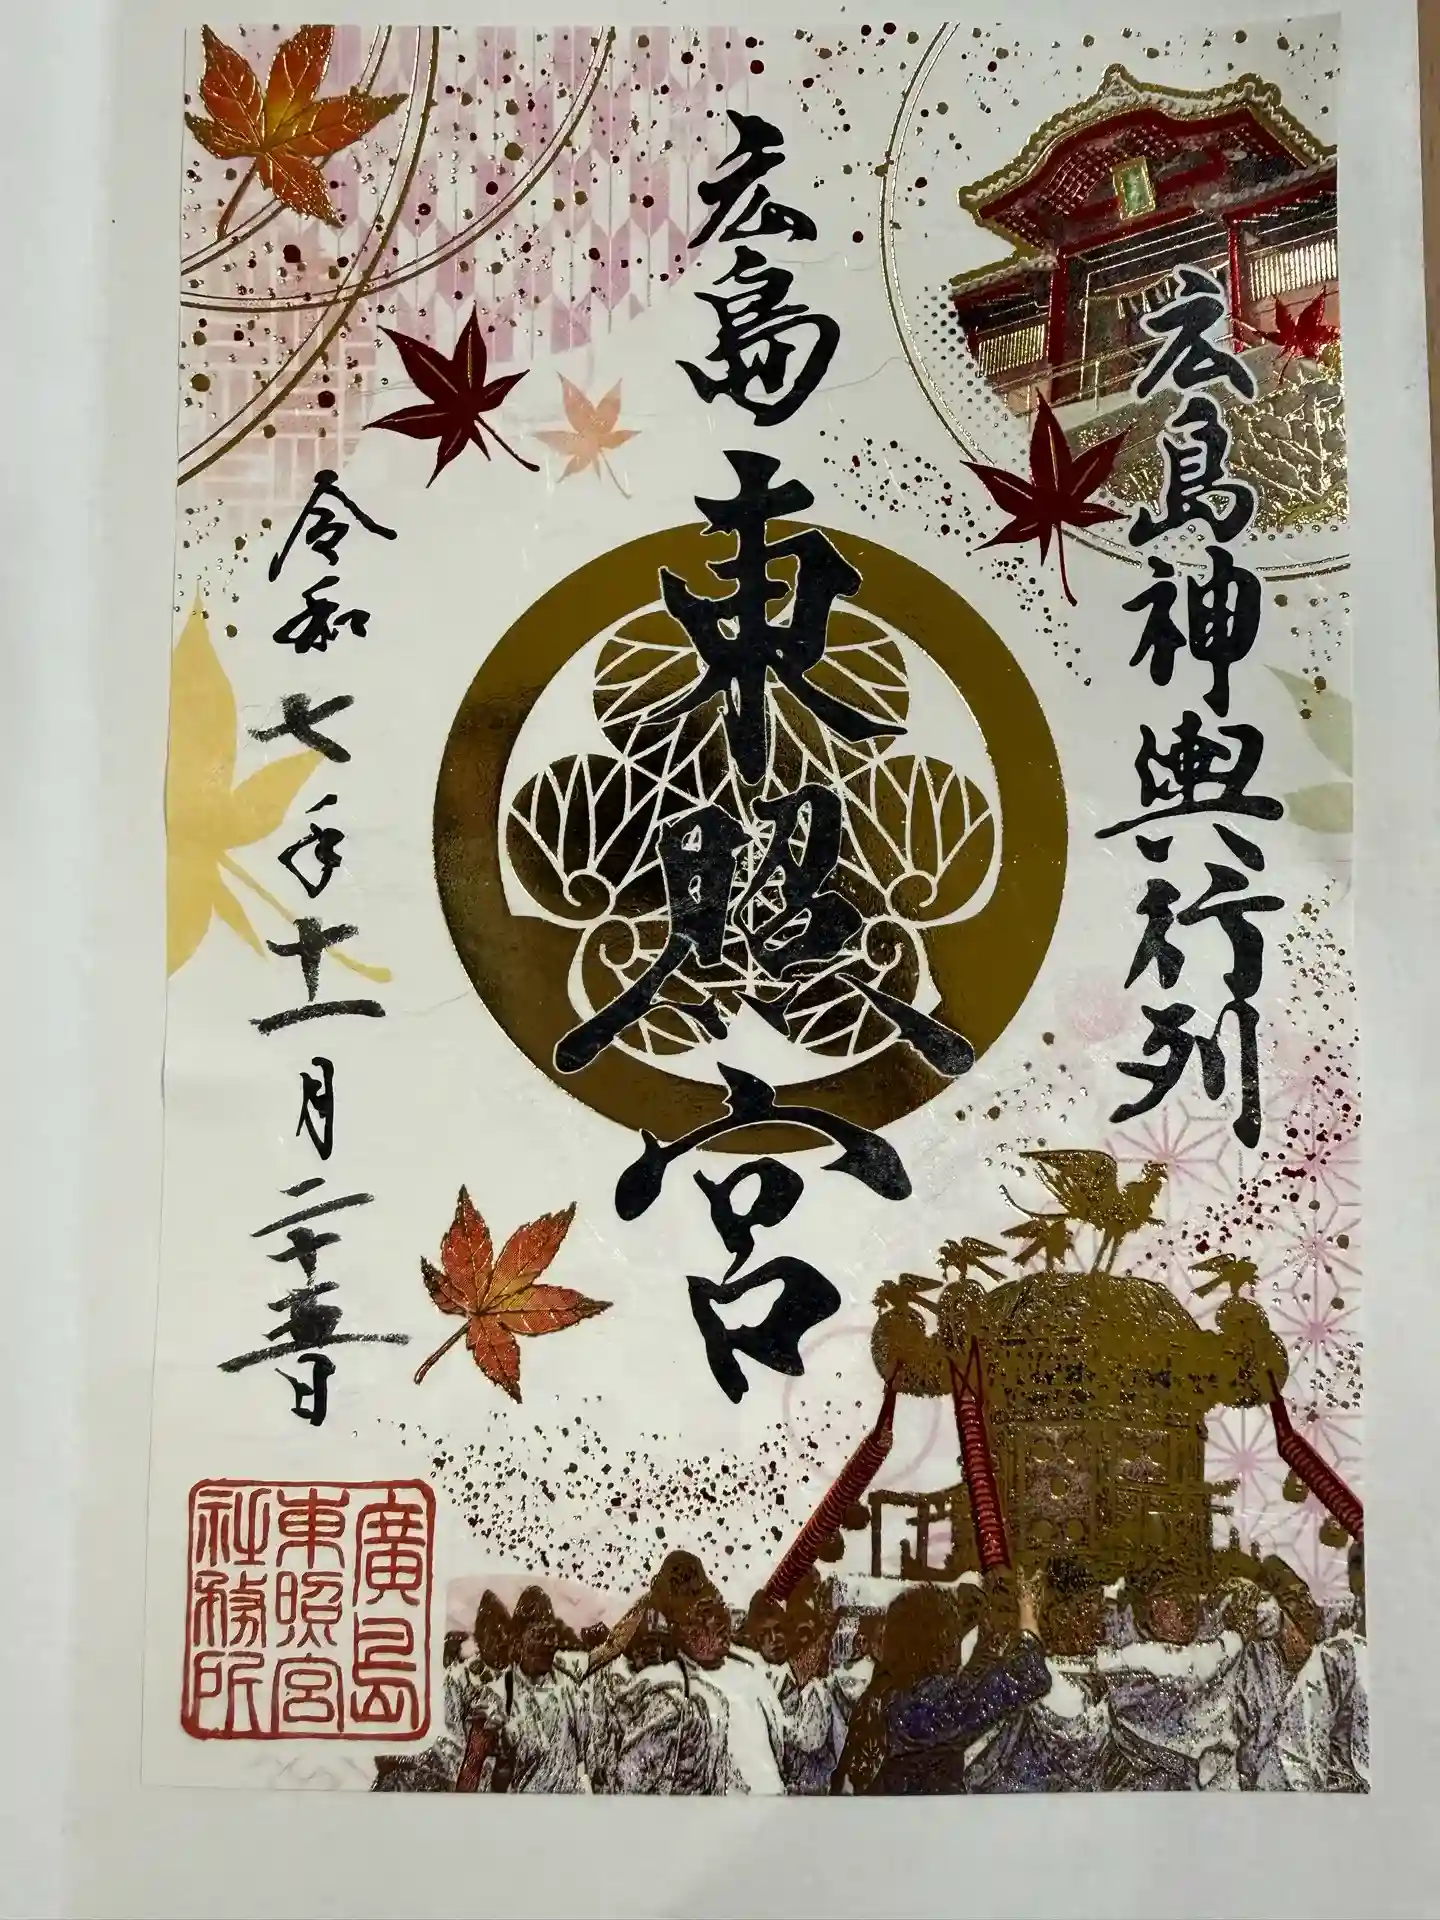 広島神輿行列
広島東照宮
令和七年十一月二十五日
廣島
東照宮
社務所